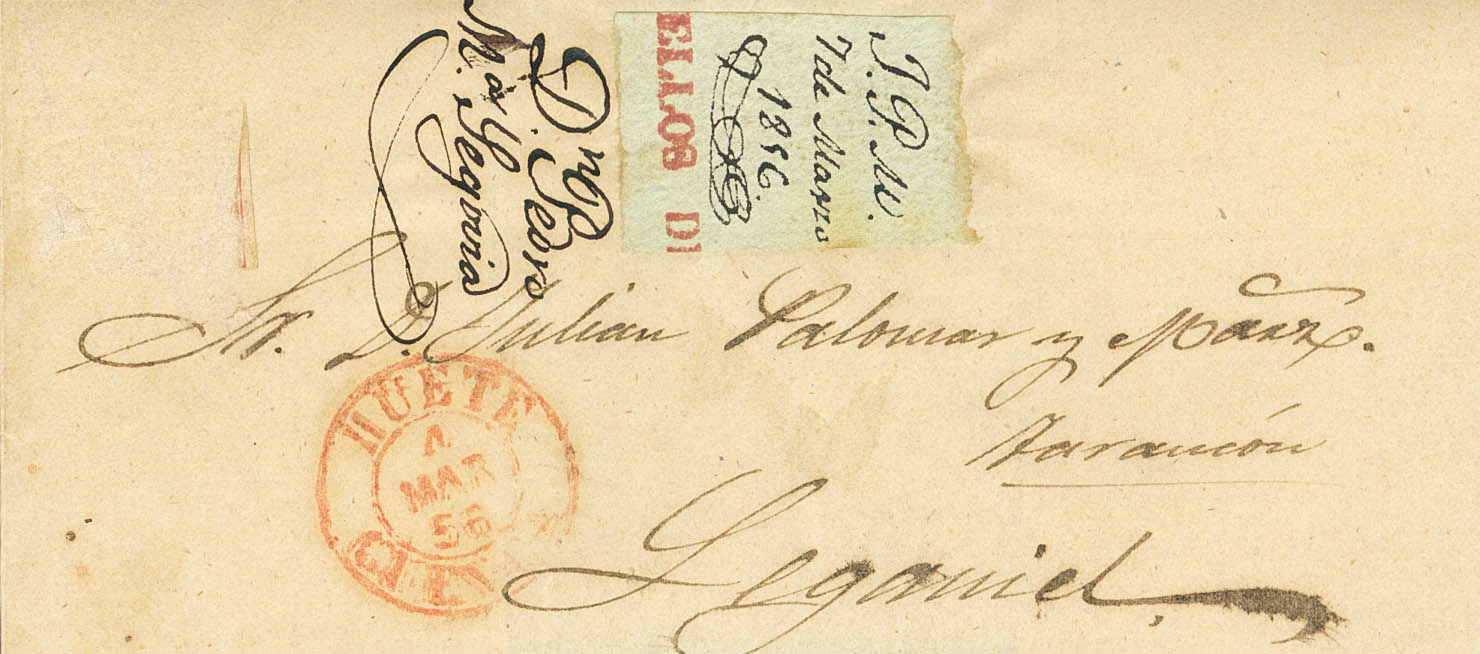 Dn. Pedro
Mor. Segovia
ELLOS DE
J. P. M.
7 de Marzo
1856.
Sr. D. Julian Palomar y
Tarancón
Leganiel.
HUETE
MAR
56